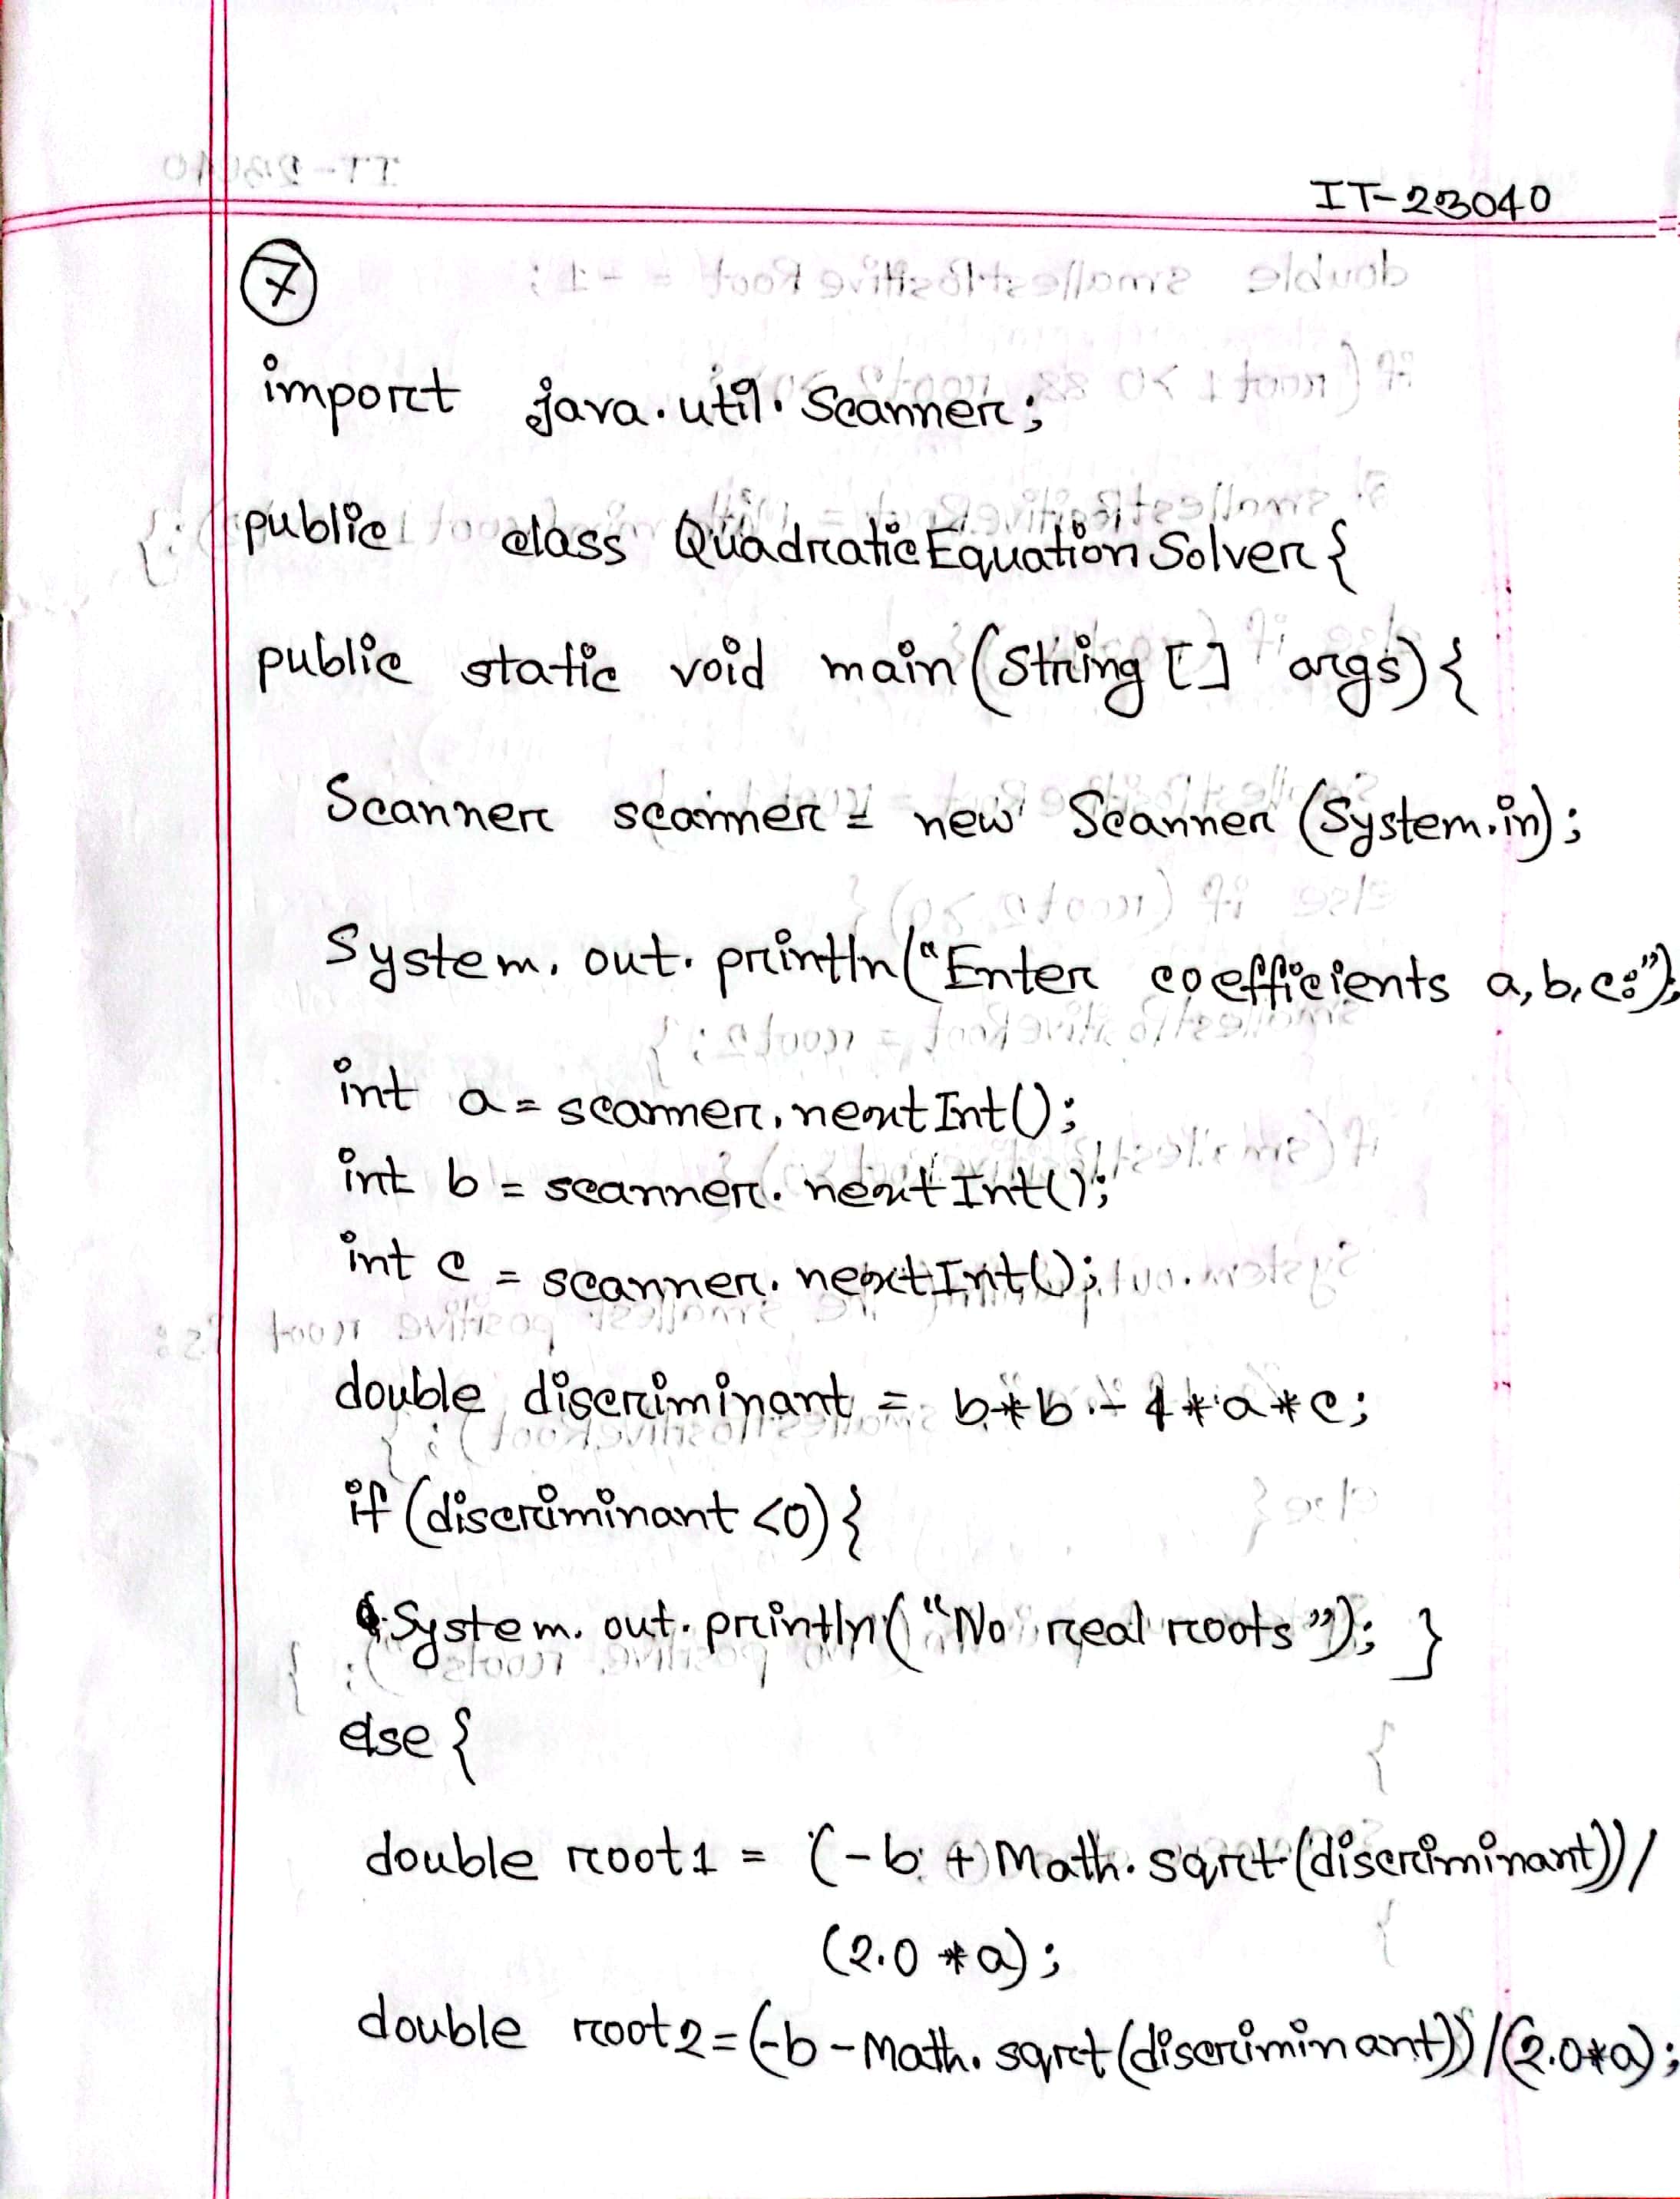 IT-23040
7
import java.util.Scanner;
public class QuadraticEquationSolver{
public static void main(String [] args){
Scanner scanner = new Scanner (System.in);
System.out.println("Enter coefficients a,b,c:");
int a = scanner.nextInt();
int b = scanner.nextInt();
int c = scanner.nextInt();
double discriminant = b*b - 4*a*c;
if (discriminant <0){
System.out.println("No real roots"); }
else {
double root1 = (-b + Math.sqrt(discriminant))/
(2.0 *a);
double root2=(-b - Math.sqrt(discriminant))/(2.0*a);